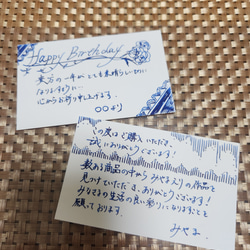 Happy Birthday
貴方の一年がとても素晴らしい物に
なりますように
心からお祈り申し上げます。
○○より
この度はご購入いただき、
誠にありがとうございます!
数ある商品の中から みやま入りの作品を
見つけていただき、ありがとうございます!
みなさまの生活の良い彩りになりますことを
願っております。
みやま